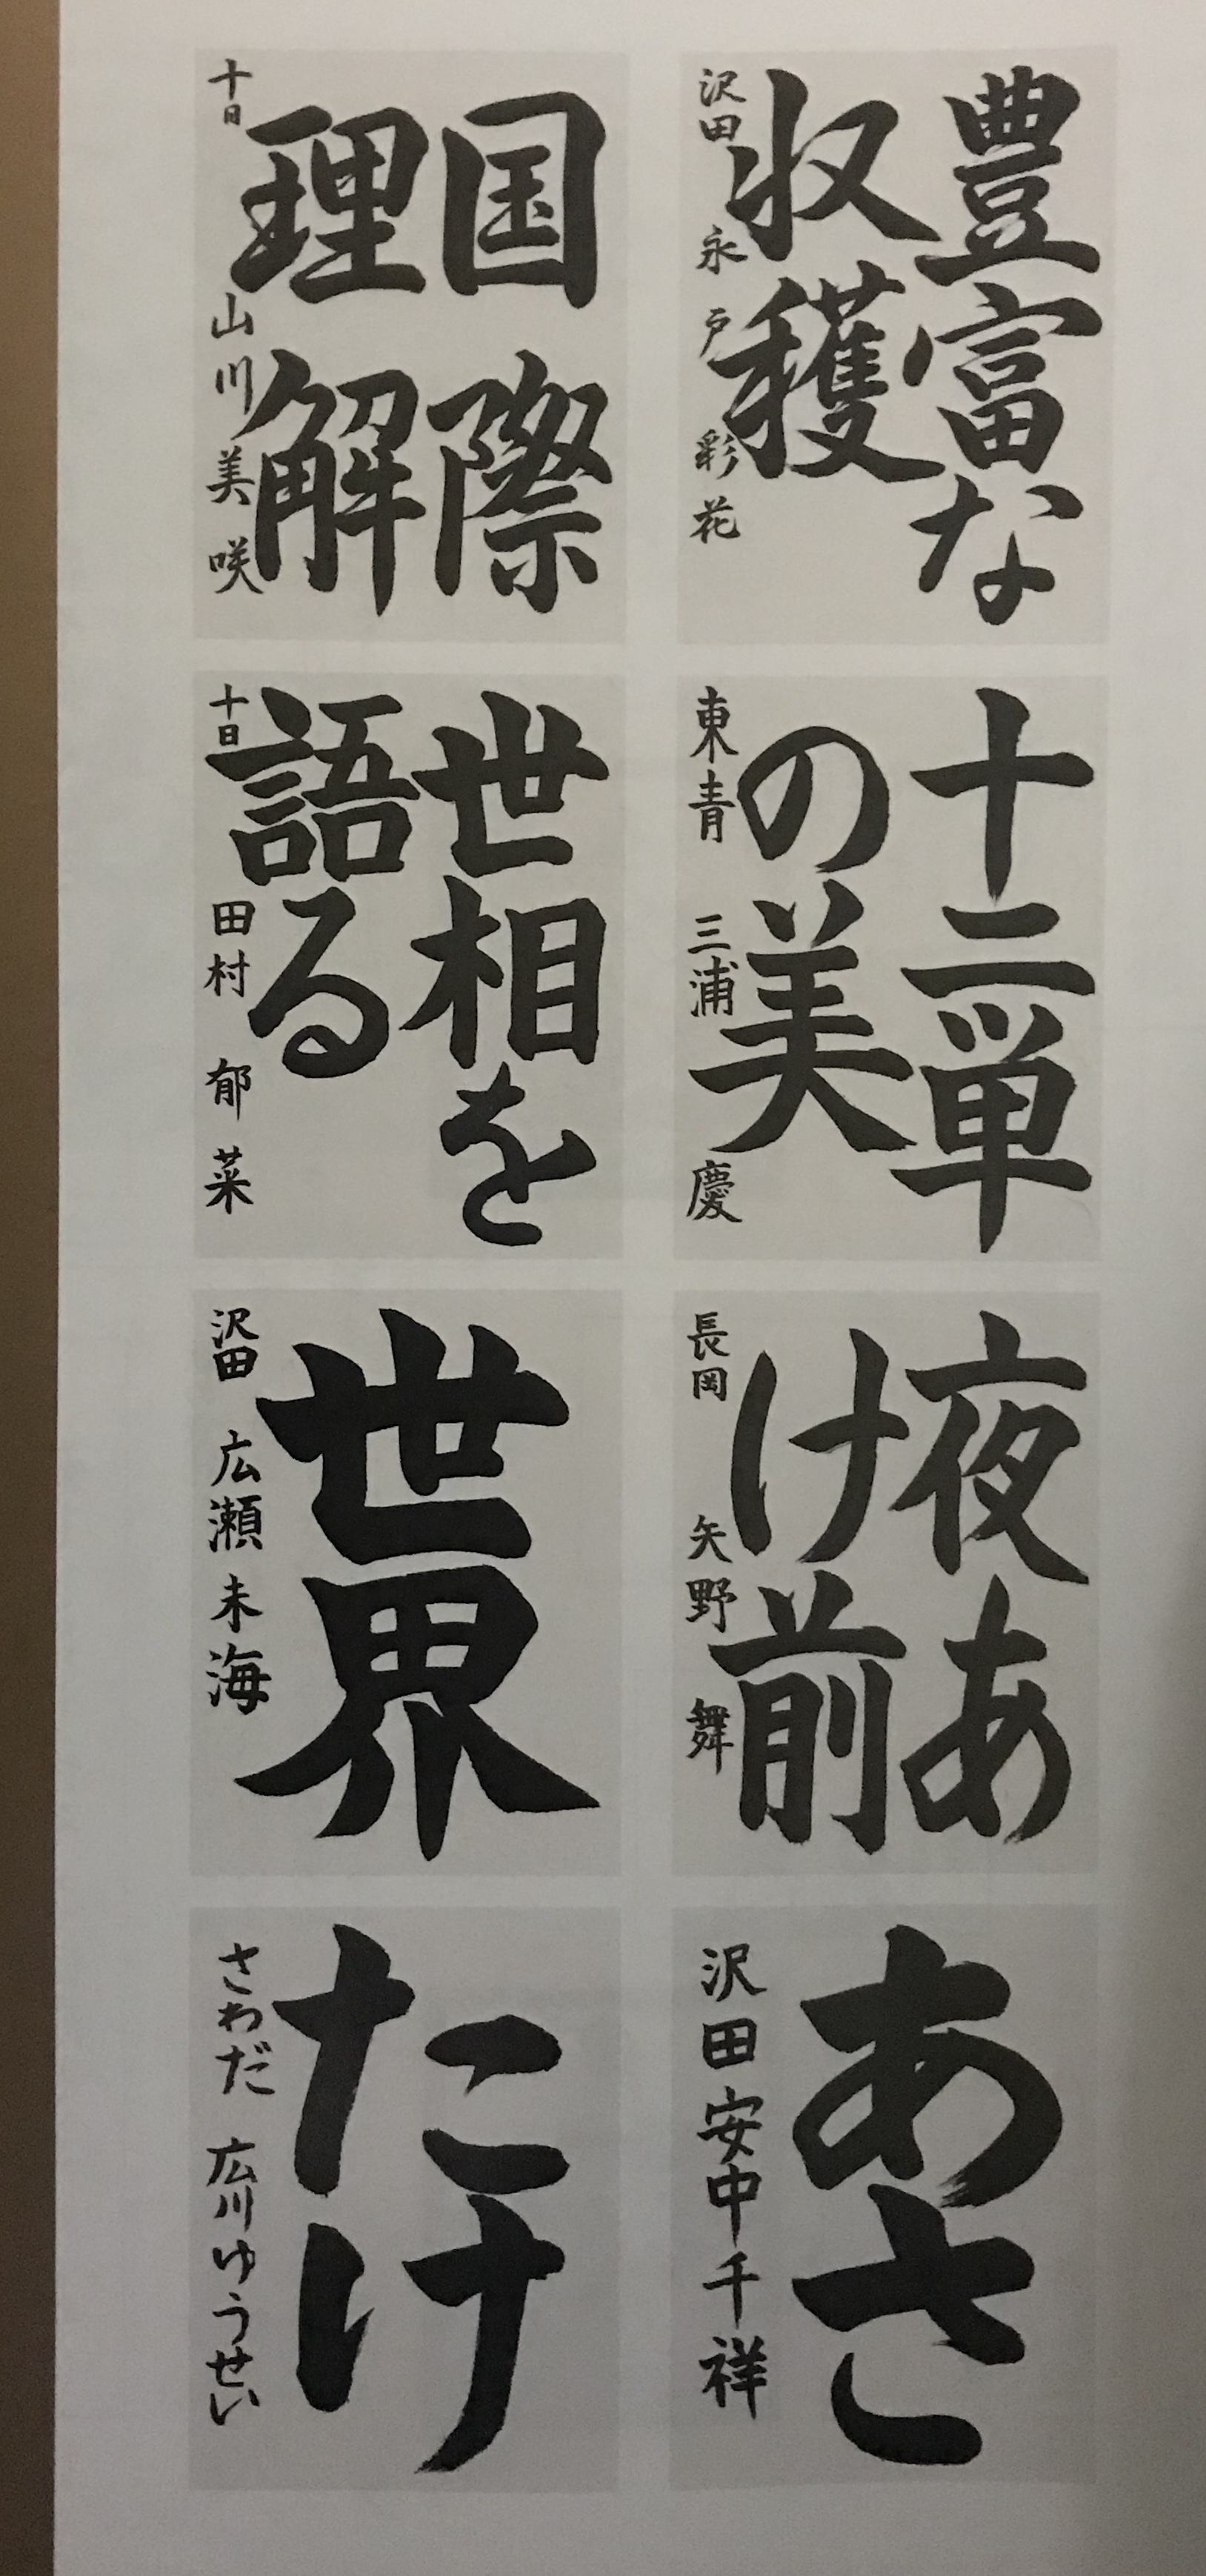 豊富な
収穫
沢田 永戸彩花
国際
理解
十日 山川美咲
十二単
の美
東青 三浦慶
世相を
語る
十日 田村郁菜
夜あ
け前
長岡 矢野舞
世界
沢田 広瀬未海
あさ
沢田安中千祥
たけ
さわだ 広川ゆうせい